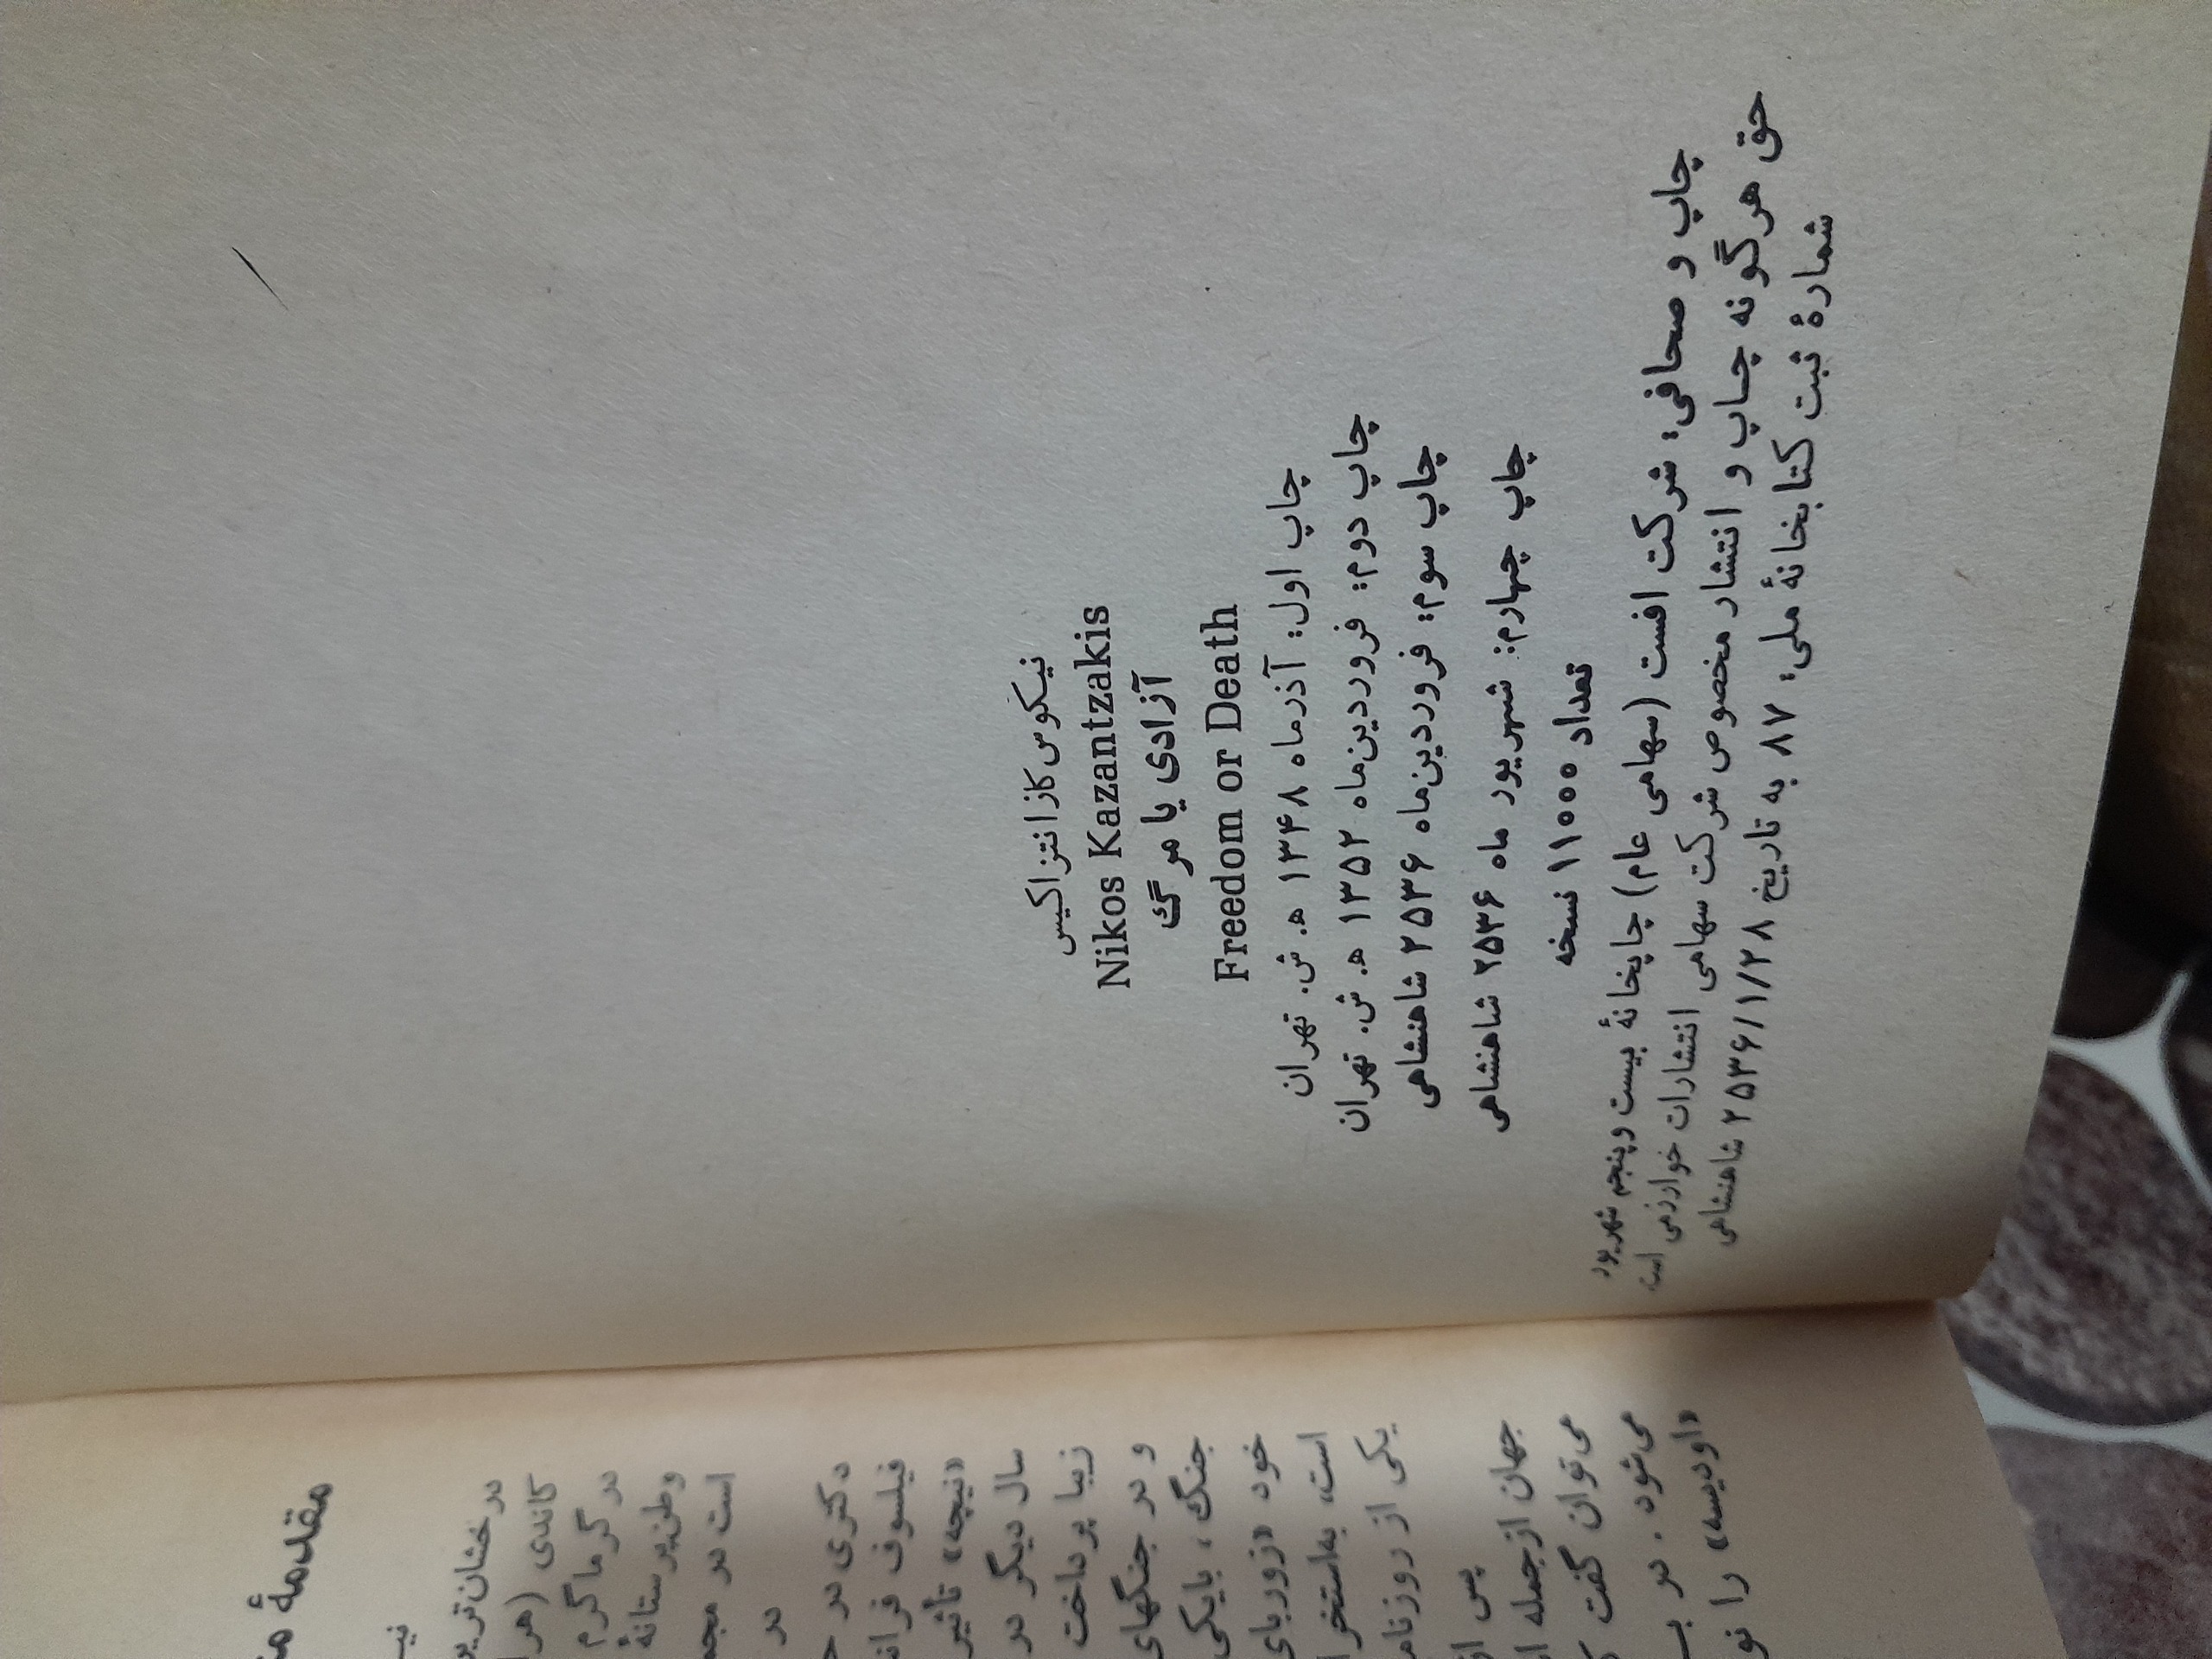 نیکوس کازانتزاکیس
Nikos Kazantzakis
آزادی یا مرگ
Freedom or Death
چاپ اول: آذرماه ۱۳۴۸ ه‍. ش. تهران
چاپ دوم: فروردین‌ماه ۱۳۵۲ ه‍. ش. تهران
چاپ سوم: فروردین‌ماه ۲۵۳۶ شاهنشاهی
چاپ چهارم: شهریور ماه ۲۵۳۶ شاهنشاهی
تعداد ۱۱۰۰۰ نسخه
چاپ و صحافی: شرکت افست (سهامی عام) چاپخانهٔ بیست و پنجم شهریور
حق هرگونه چاپ و انتشار مخصوص شرکت سهامی انتشارات خوارزمی است
شمارهٔ ثبت کتابخانهٔ ملی: ۸۷ به تاریخ ۲۵۳۶/۱/۲۸ شاهنشاهی
مقدمهٔ
درخشان‌ترین
کاندی (هرا
در گرماگرم
وطن‌پرستانهٔ
است در مجم
در
دکتری در
فیلسوف فران
«نیچه» تأثیر
سال دیگر در
زیبا پرداخت
و در جنگهای
جنگ، بایکی
خود «زوربای
است، به‌استخرا
یکی از روزنام
پس از
جهان ازجمله
می‌توان گفت
می‌شود. در
«اودیسه» را نو